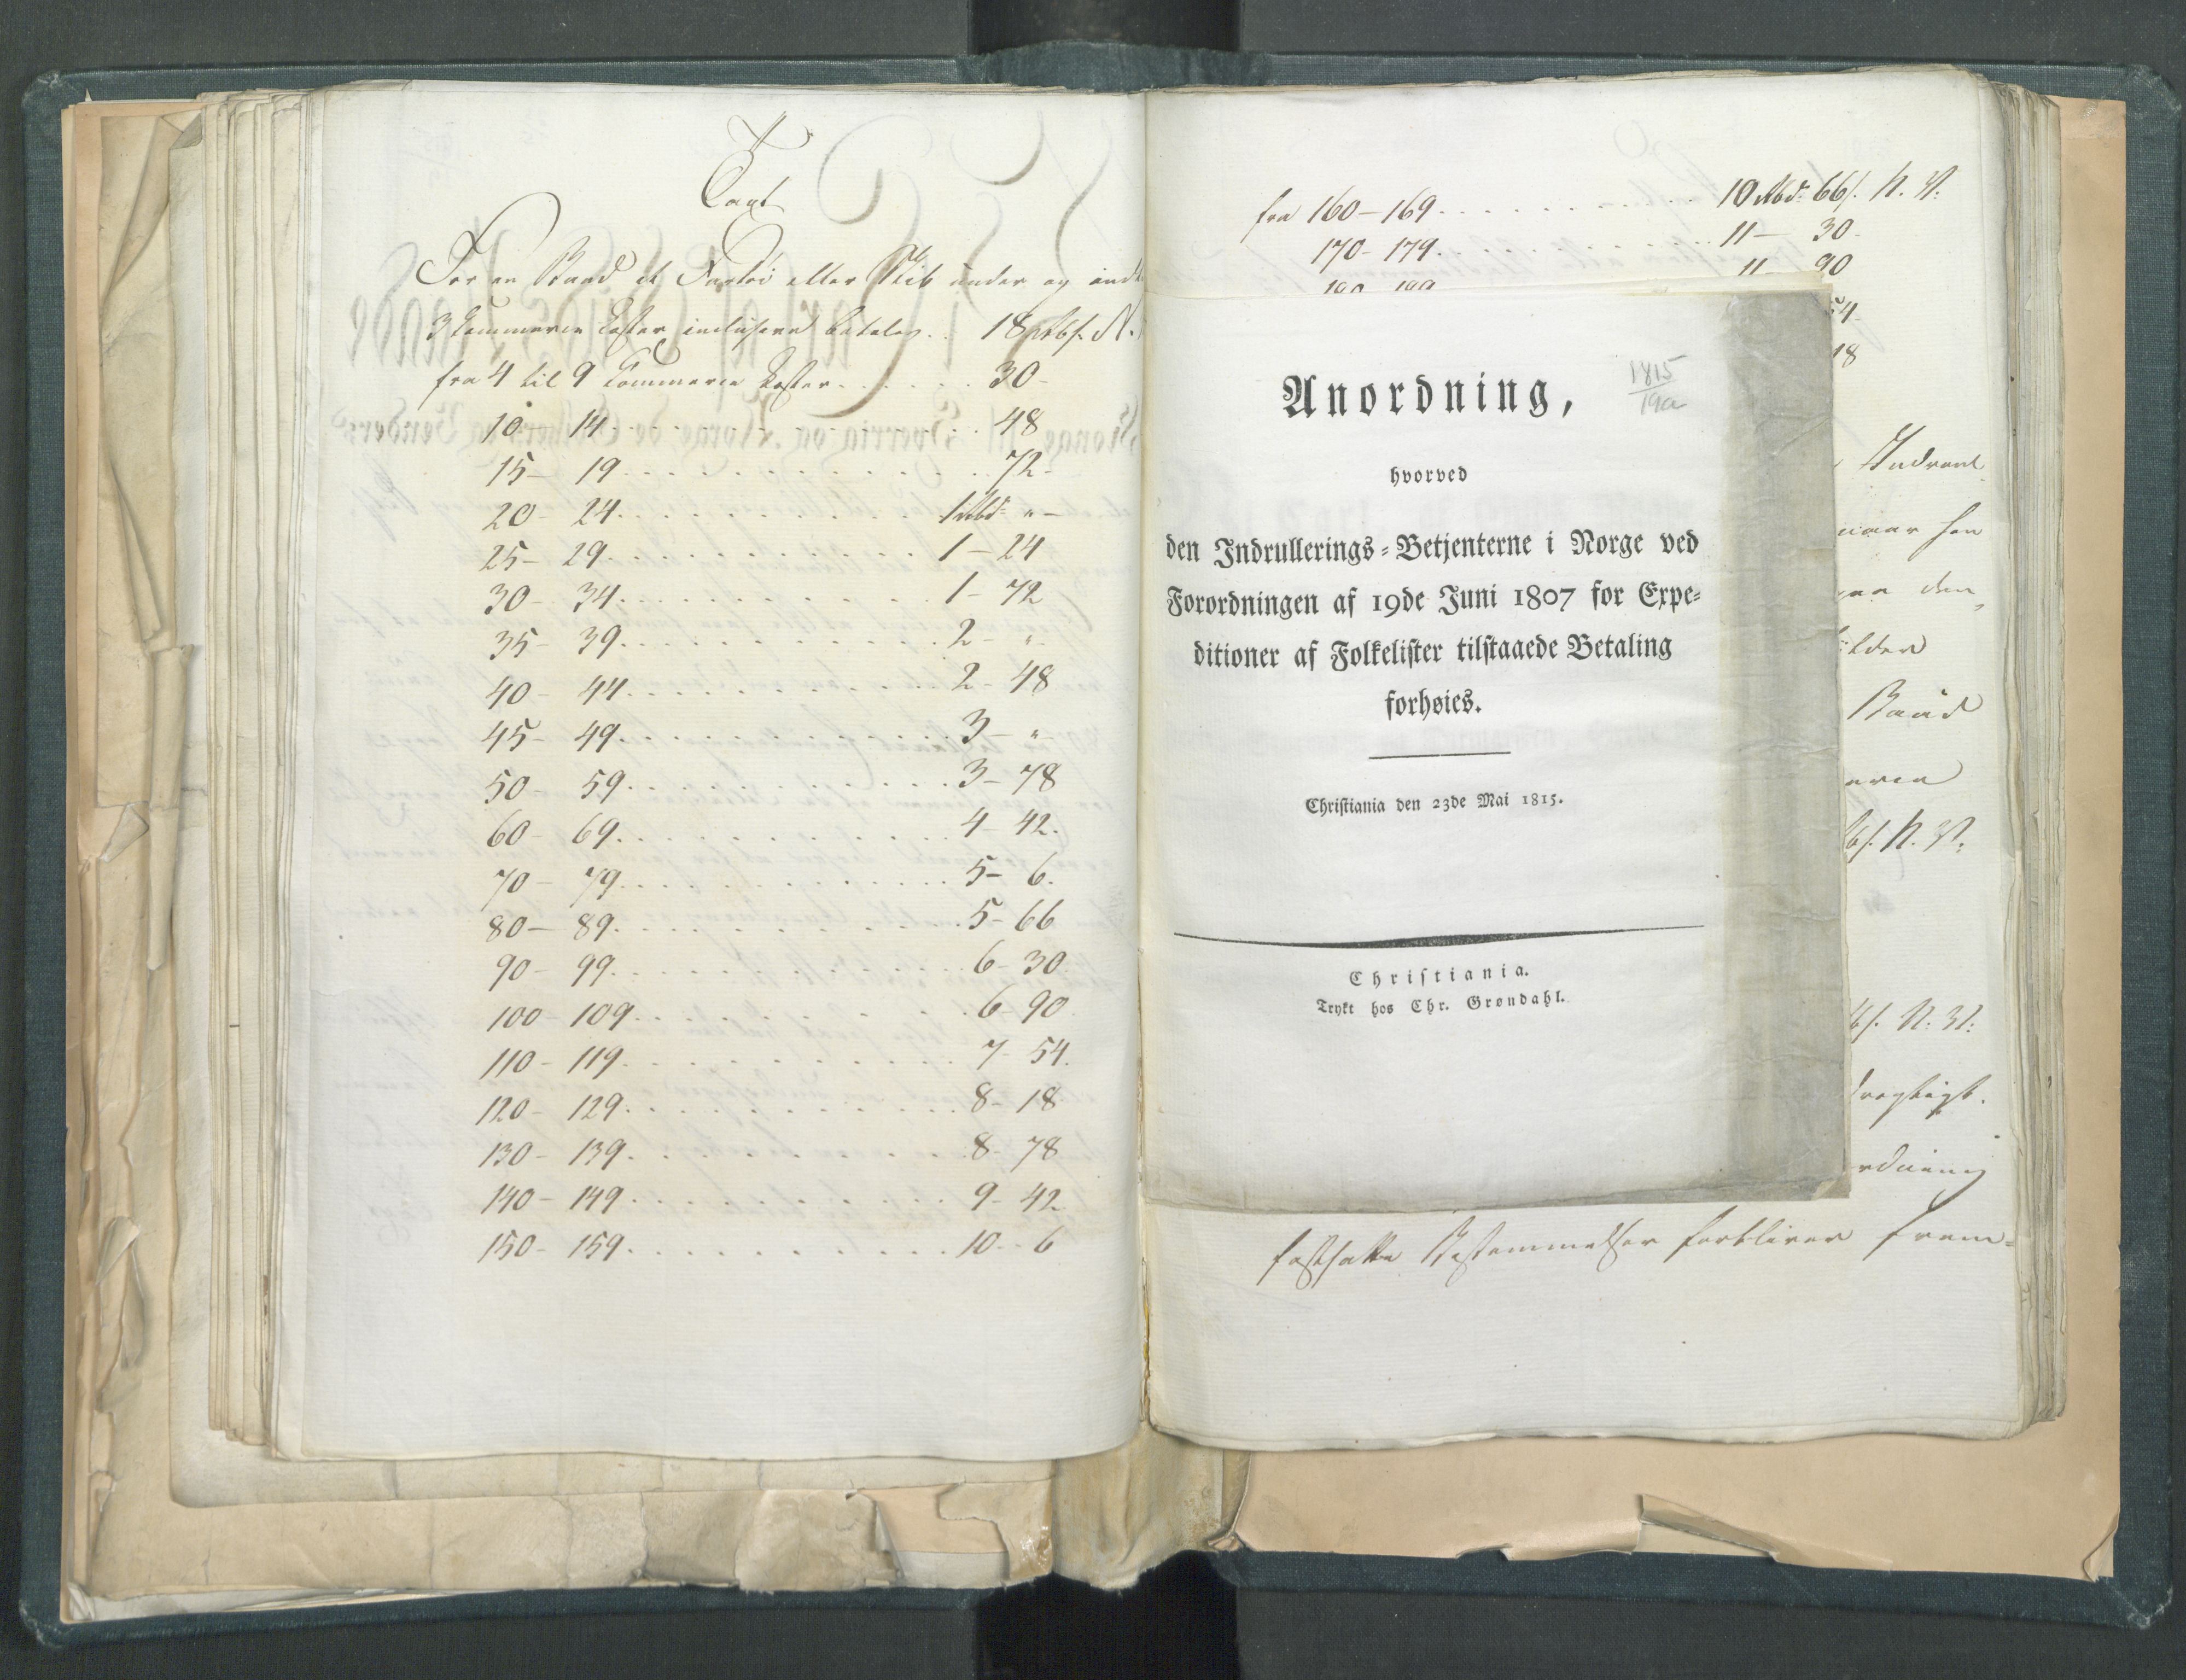 Taxt
For en Baad et Fartøi eller Skib under og
3 Commerce Læster inclusive betales . . 18 rbs. N.
fra 4 til 9 Commerce Læster . . . . . . 30 -
10 - 14 . . . . . . . . . . 48
15 - 19 . . . . . . . . . . 72 -
20 - 24 . . . . . . . . . . 1 Rbd: " -
25 - 29 . . . . . . . . . . 1 - 24
30 - 34 . . . . . . . . . . 1 - 72
35 - 39 . . . . . . . . . . 2 - "
40 - 44 . . . . . . . . . . 2 - 48
45 - 49 . . . . . . . . . . 3 - "
50 - 59 . . . . . . . . . . 3 - 78
60 - 69 . . . . . . . . . . 4 - 42.
70 - 79 . . . . . . . . . . 5 - 6.
80 - 89 . . . . . . . . . . 5 - 66
90 - 99 . . . . . . . . . . 6 - 30
100 - 109 . . . . . . . . . 6 - 90
110 - 119 . . . . . . . . . 7 - 54.
120 - 129 . . . . . . . . . 8 - 18
130 - 139 . . . . . . . . . 8 - 78
140 - 149 . . . . . . . . . 9 - 42
150 - 159 . . . . . . . . . 10 - 6
fra 160 - 169 . . . . . . . . 10 Rbd: 66 s. N. V:
170 - 179 . . . . . . . . 11 - 30
11 - 90
54
18
Anordning,
1815
19a
hvorved
den Indrullerings-Betjenterne i Norge ved
Forordningen af 19de Juni 1807 for Expe-
ditioner af Folkelister tilstaaede Betaling
forhøies.
Christiania den 23de Mai 1815.
Christiania.
Trykt hos Chr. Grøndahl.
naar han
paa den
Baad
N. V:
N: V:
fastsatte Bestemmelser forbliver frem-